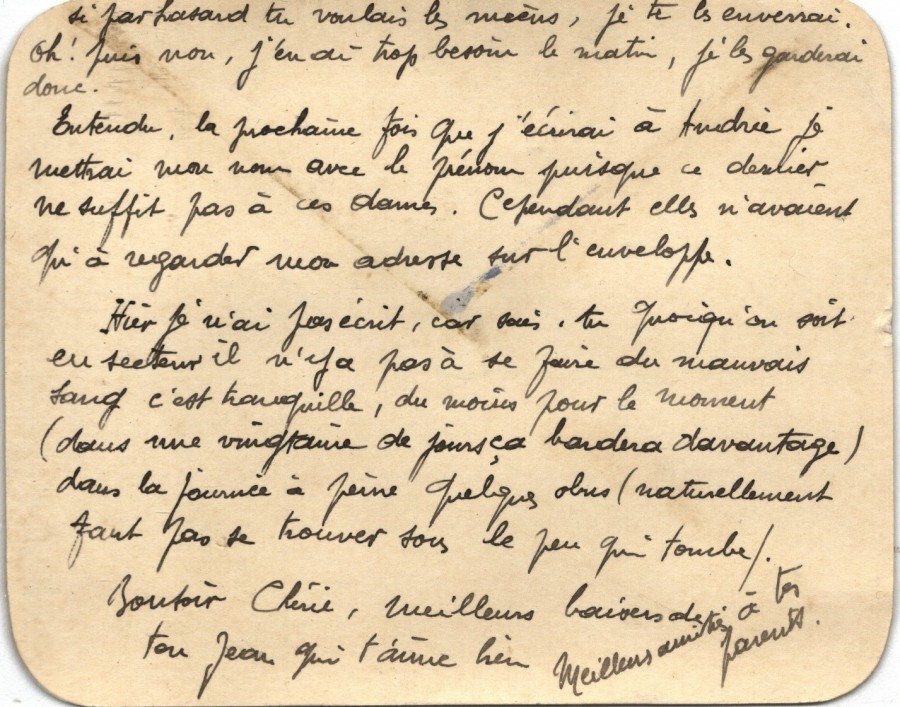 si par hasard tu voulais les miens, je te les enverrai.
Oh! puis non, j'en ai trop besoin le matin, je les garderai
donc.
Entendu, la prochaine fois que j'écrirai à Andrée je
mettrai mon nom avec le prénom puisque ce dernier
ne suffit pas à ces dames. Cependant elles n'avaient
qu'à regarder mon adresse sur l'enveloppe.
Hier je n'ai pas écrit, car sais-tu quoiqu'on soit
en secteur il n'y a pas à se faire du mauvais
sang c'est tranquille, du moins pour le moment
(dans une vingtaine de jours ça bardera davantage)
dans la journée à peine quelques obus (naturellement
faut pas se trouver sous le peu qui tombe).
Bonsoir Chérie, meilleurs baisers de
ton Jean qui t'aime bien
Meilleurs amitiés à tes
parents.